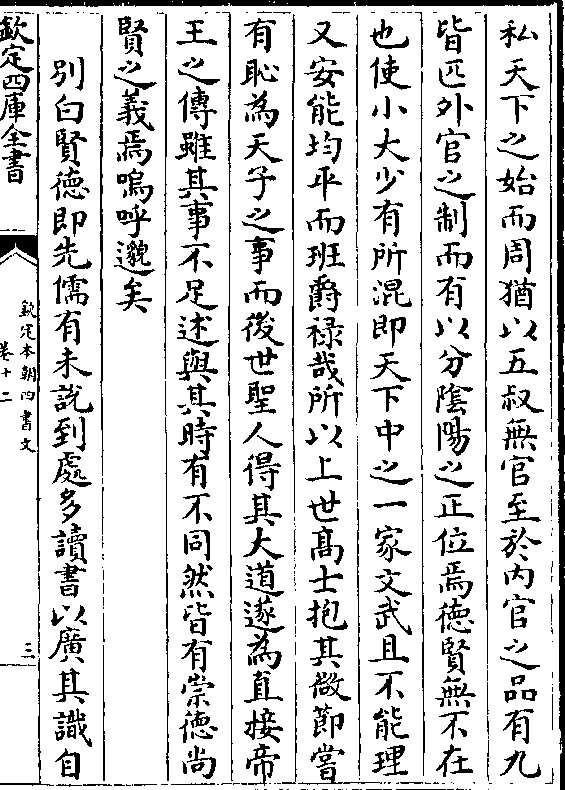 私天下之始而周猶以五叔無官至於内官之品有九
皆匹外官之制而有以分陰陽之正位焉德賢無不在
也使小大少有所混即天下中之一家文武且不能理
又安能均平而班爵禄哉所以上世髙士抱其敝節嘗
有恥為天子之事而後世聖人得其大道遂為直接帝
王之傳雖其事不足述與其時有不同然皆有崇德尚
賢之義焉嗚呼邈矣
别白賢德即先儒有未説到處多讀書以廣其識自
欽定四庫全書
欽定本朝四書文
卷十二
三